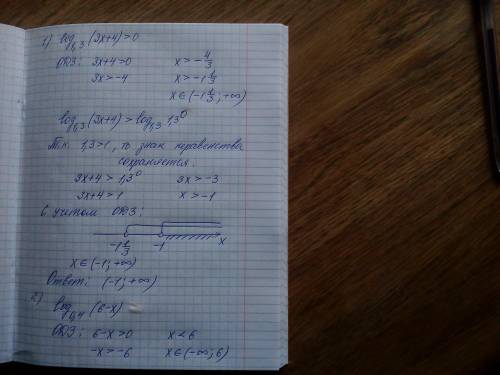 1) log₁,₃(3x+4)>0
ОДЗ: 3x+4>0 x>-4/3
3x>-4 x>-1 1/3
x∈(-1 1/3; +∞)
log₁,₃(3x+4)>log₁,₃ 1,3⁰
Т.к. 1,3>1, то знак неравенства
сохраняется.
3x+4>1,3⁰ 3x>-3
3x+4>1 x>-1
С учетом ОДЗ:
-1 1/3 -1 x
x∈(-1; +∞)
Ответ: (-1; +∞)
2)
log₀,₄(6-x)
ОДЗ: 6-x>0 x<6
-x>-6 x∈(-∞; 6)